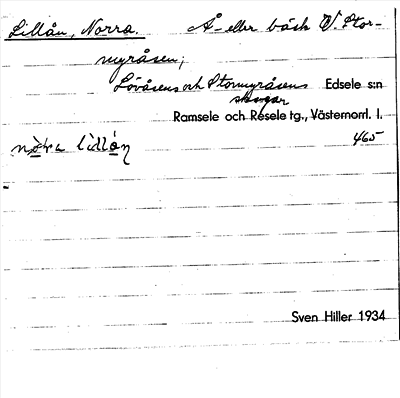 Lillån, Norra. Å- eller bäck V. Stor-
myråsen;
Lövåsens och Stormyråsens Edsele s:n
skogar
Ramsele och Resele tg., Västernorrl. l.
465
nòra lìllóŋ
Sven Hiller 1934